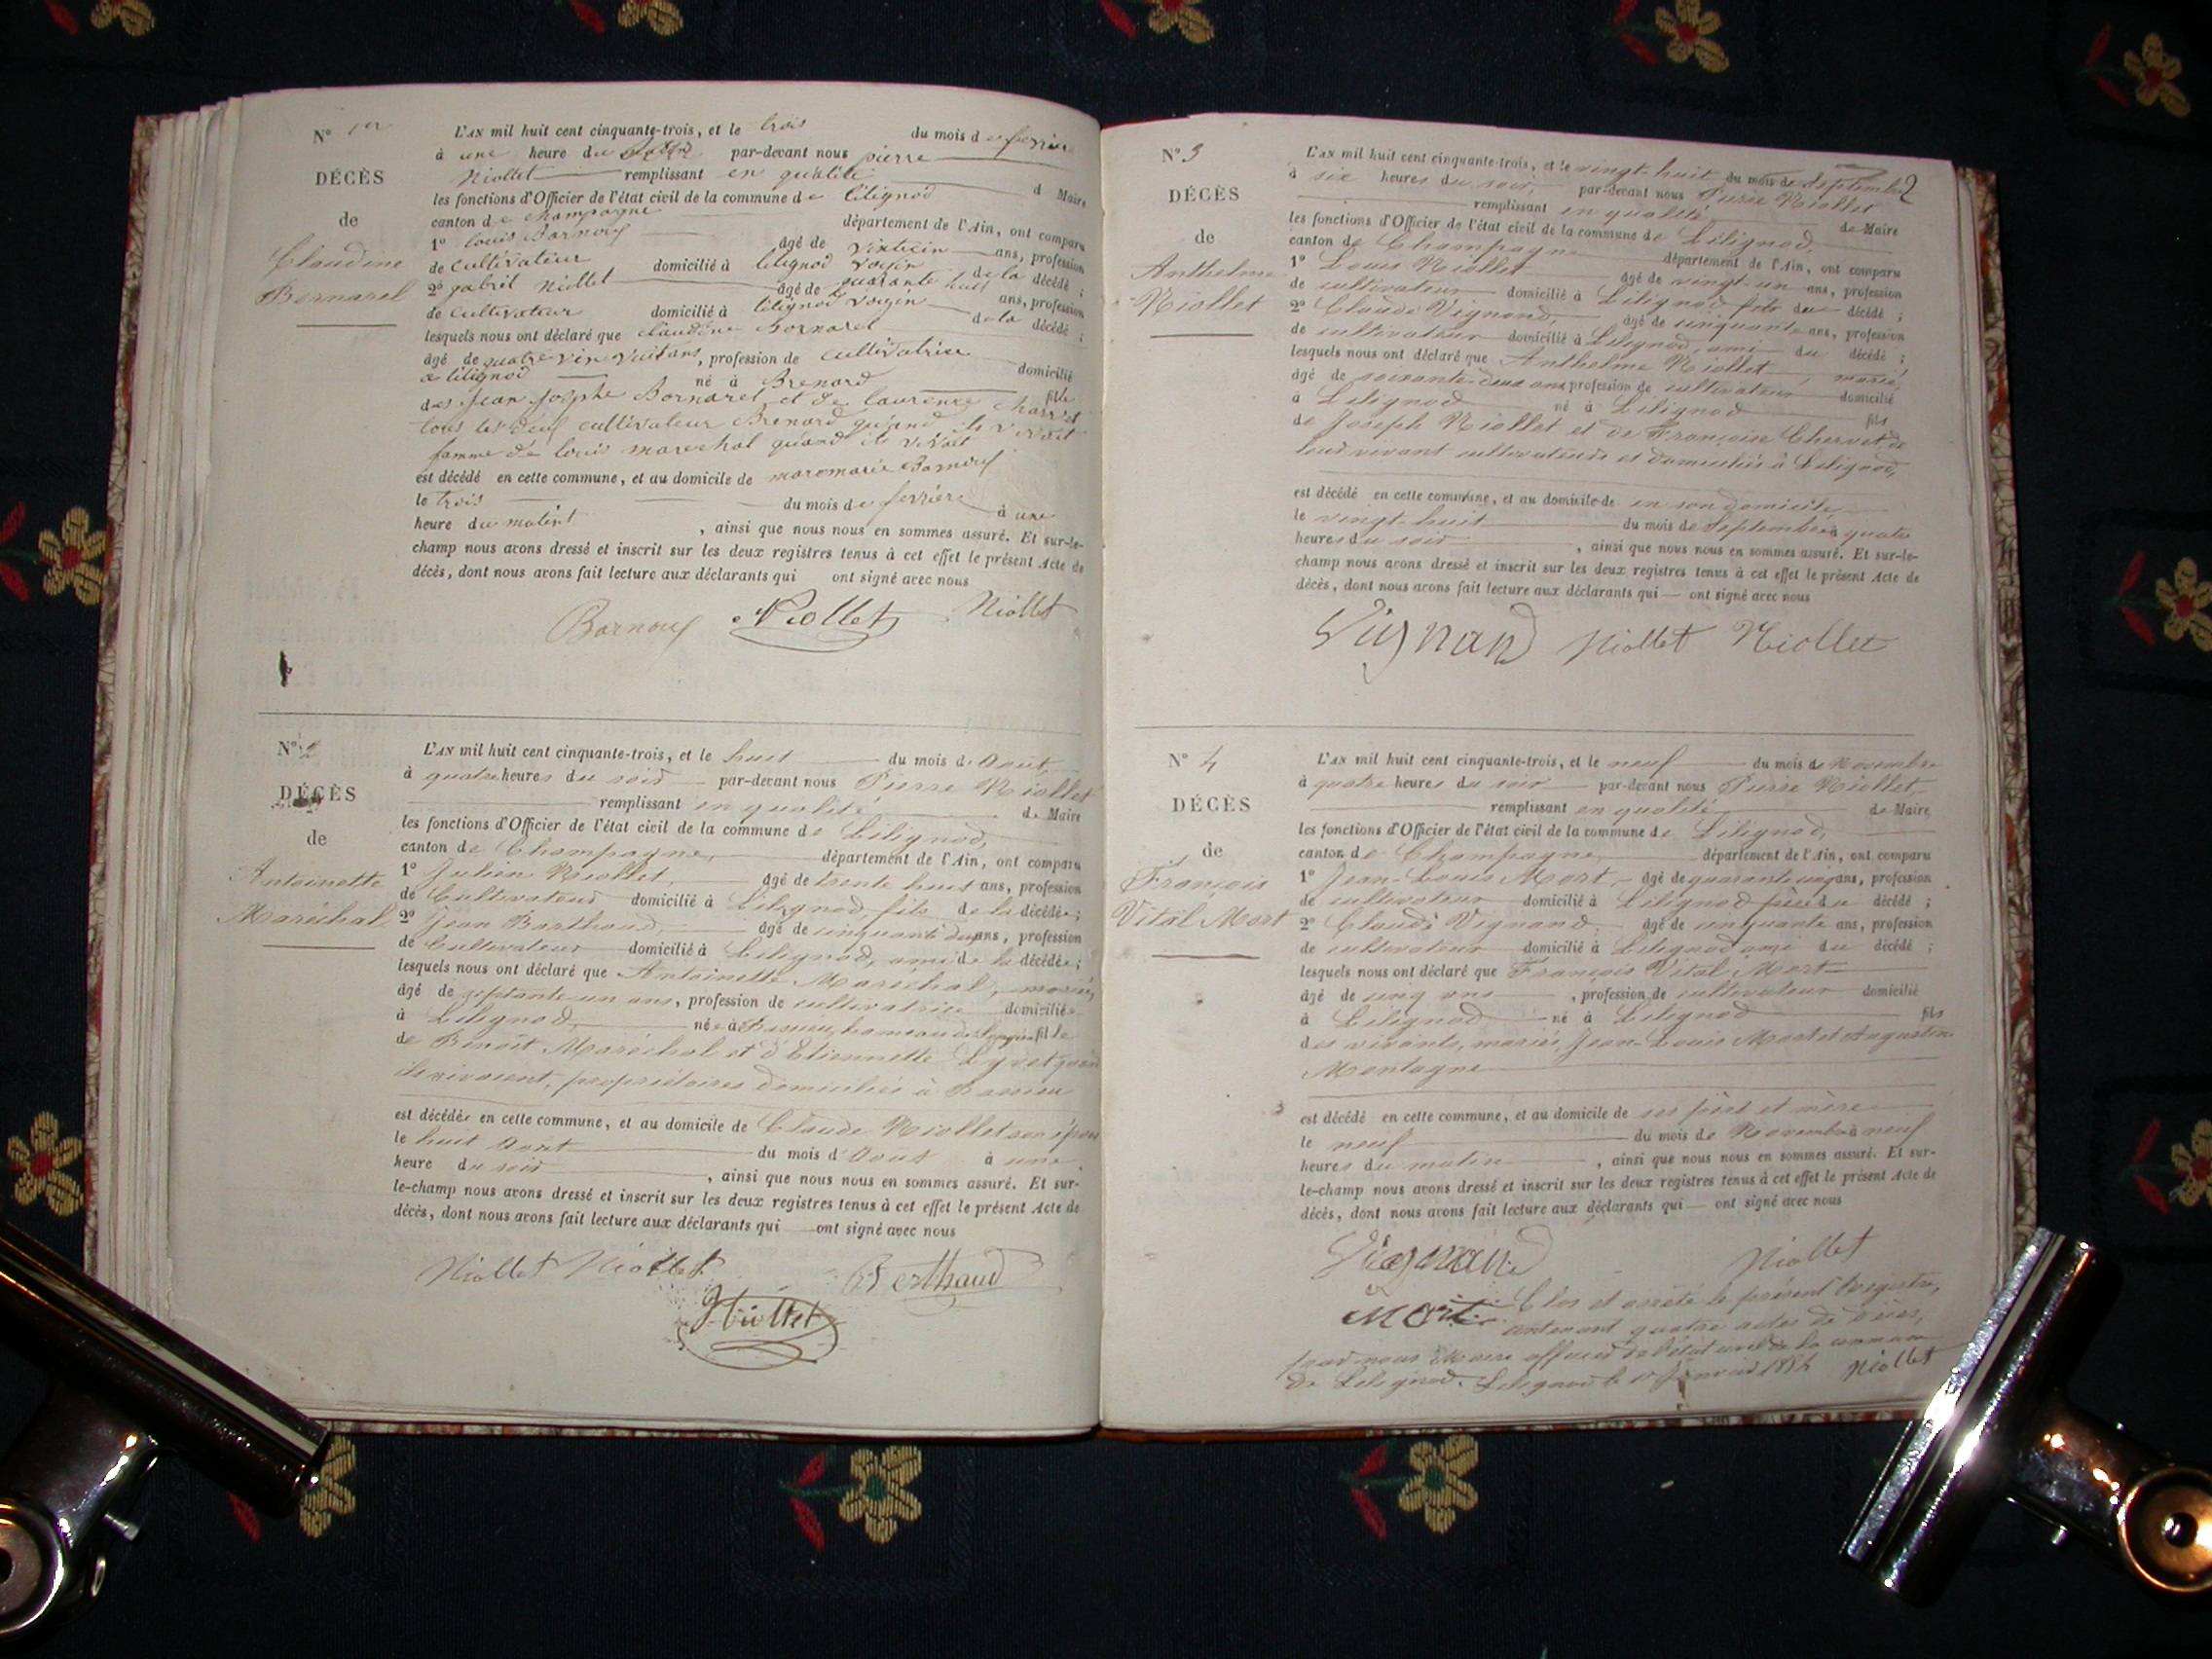 N° 1er
DÉCÈS
de
Claudine
Bornarel
L'AN mil huit cent cinquante-trois, et le trois du mois de ferrière
à une heure du par-devant nous pierre
Niollet remplissant en qualité d Maire
les fonctions d'Officier de l'état civil de la commune de lilignod
canton de champagne département de l'Ain, ont comparu
1° louis Bornouf âgé de ans, profession
de cultivateur domicilié à lilignod voysin de la décédé ;
2° gabril niollet âgé de quarante huit ans, profession
de cultivateur domicilié à lilignod voysin de la décédé ;
lesquels nous ont déclaré que claudine bornarel
âgé de quatre vin vuitans, profession de cultivatrice domicilié
a lilignod né à Brenord fille
des Jean Josephe Bornarel et de laurence charvet
tous les deuf cultivateur Brenord quand ils vivoit
famme de louis marechal quand ils vivoit
est décédé en cette commune, et au domicile de maromarie Bornouf
le trois du mois de ferrière à une
heure du matint , ainsi que nous nous en sommes assuré. Et sur-le-
champ nous avons dressé et inscrit sur les deux registres tenus à cet effet le présent Acte de
décès, dont nous avons fait lecture aux déclarants qui ont signé avec nous
Bornouf Niollet Niollet
N° 2
DÉCÈS
de
Antoinette
Maréchal
L'AN mil huit cent cinquante-trois, et le huit du mois d'Août
à quatre heures du soir par-devant nous Pierre Niollet
remplissant en qualité de Maire
les fonctions d'Officier de l'état civil de la commune de Lilignod,
canton de Champagne, département de l'Ain, ont comparu
1° Julien Niollet, âgé de trente huit ans, profession
de Cultivateur domicilié à Lilignod, fils de la décédée ;
2° Jean Barthoud, âgé de cinquante deux ans, profession
de Cultivateur domicilié à Lilignod, ami de la décédée ;
lesquels nous ont déclaré que Antoinette Maréchal, mariée,
âgé de septante un ans, profession de cultivatrice domiciliée
à Lilignod, née à Bassieu, hameau de fille
de Benoit Maréchal et d'Etiennette quand
ils vivaient, propriétaires domiciliés à Bassieu
est décédée en cette commune, et au domicile de Claude Niollet son époux
le huit Août du mois d'Août à une
heure du soir , ainsi que nous nous en sommes assuré. Et sur-
le-champ nous avons dressé et inscrit sur les deux registres tenus à cet effet le présent Acte de
décès, dont nous avons fait lecture aux déclarants qui ont signé avec nous
Niollet Niollet Berthaud
Niollet
2
N° 3
DÉCÈS
de
Anthelme
Niollet
L'AN mil huit cent cinquante-trois, et le vingt-huit du mois de Septembre
à six heures du soir, par-devant nous Pierre Niollet
remplissant en qualité de Maire
les fonctions d'Officier de l'état civil de la commune de Lilignod,
canton de Champagne département de l'Ain, ont comparu
1° Louis Niollet âgé de vingt-un ans, profession
de cultivateur domicilié à Lilignod fils du décédé ;
2° Claude Vignand, âgé de cinquante ans, profession
de cultivateur domicilié à Lilignod, ami du décédé ;
lesquels nous ont déclaré que Anthelme Niollet, marié,
âgé de soixante-deux ans profession de cultivateur domicilié
à Lilignod né à Lilignod fils
de Joseph Niollet et de Françoise Chervet, de
leur vivant cultivateurs et domiciliés à Lilignod,
est décédé en cette commune, et au domicile de en son domicile
le vingt-huit du mois de Septembre à quatre
heures du soir , ainsi que nous nous en sommes assuré. Et sur-le-
champ nous avons dressé et inscrit sur les deux registres tenus à cet effet le présent Acte de
décès, dont nous avons fait lecture aux déclarants qui — ont signé avec nous
Vignand Niollet Niollet
N° 4
DÉCÈS
de
François
Vital Mort
L'AN mil huit cent cinquante-trois, et le neuf du mois de Novembre
à quatre heures du soir par-devant nous Pierre Niollet
remplissant en qualité de Maire
les fonctions d'Officier de l'état civil de la commune de Lilignod,
canton de Champagne, département de l'Ain, ont comparu
1° Jean-Louis Mort âgé de quarante cinq ans, profession
de cultivateur domicilié à Lilignod père du décédé ;
2° Claude Vignand âgé de cinquante ans, profession
de cultivateur domicilié à Lilignod ami du décédé ;
lesquels nous ont déclaré que François Vital Mort
âgé de cinq ans , profession de cultivateur domicilié
à Lilignod né à Lilignod fils
des vivants, mariés, Jean-Louis Mort et Augustine
Montagne
est décédé en cette commune, et au domicile de ses père et mère
le neuf du mois de Novembre à neuf
heures du matin , ainsi que nous nous en sommes assuré. Et sur-
le-champ nous avons dressé et inscrit sur les deux registres tenus à cet effet le présent Acte de
décès, dont nous avons fait lecture aux déclarants qui — ont signé avec nous
Vignand Niollet
Mort Clos et arrêté le présent Registre,
contenant quatre actes de décès,
par nous Maire officier de l'état civil de la commune
de Lilignod. Lilignod le 1er Janvier 1854 Niollet